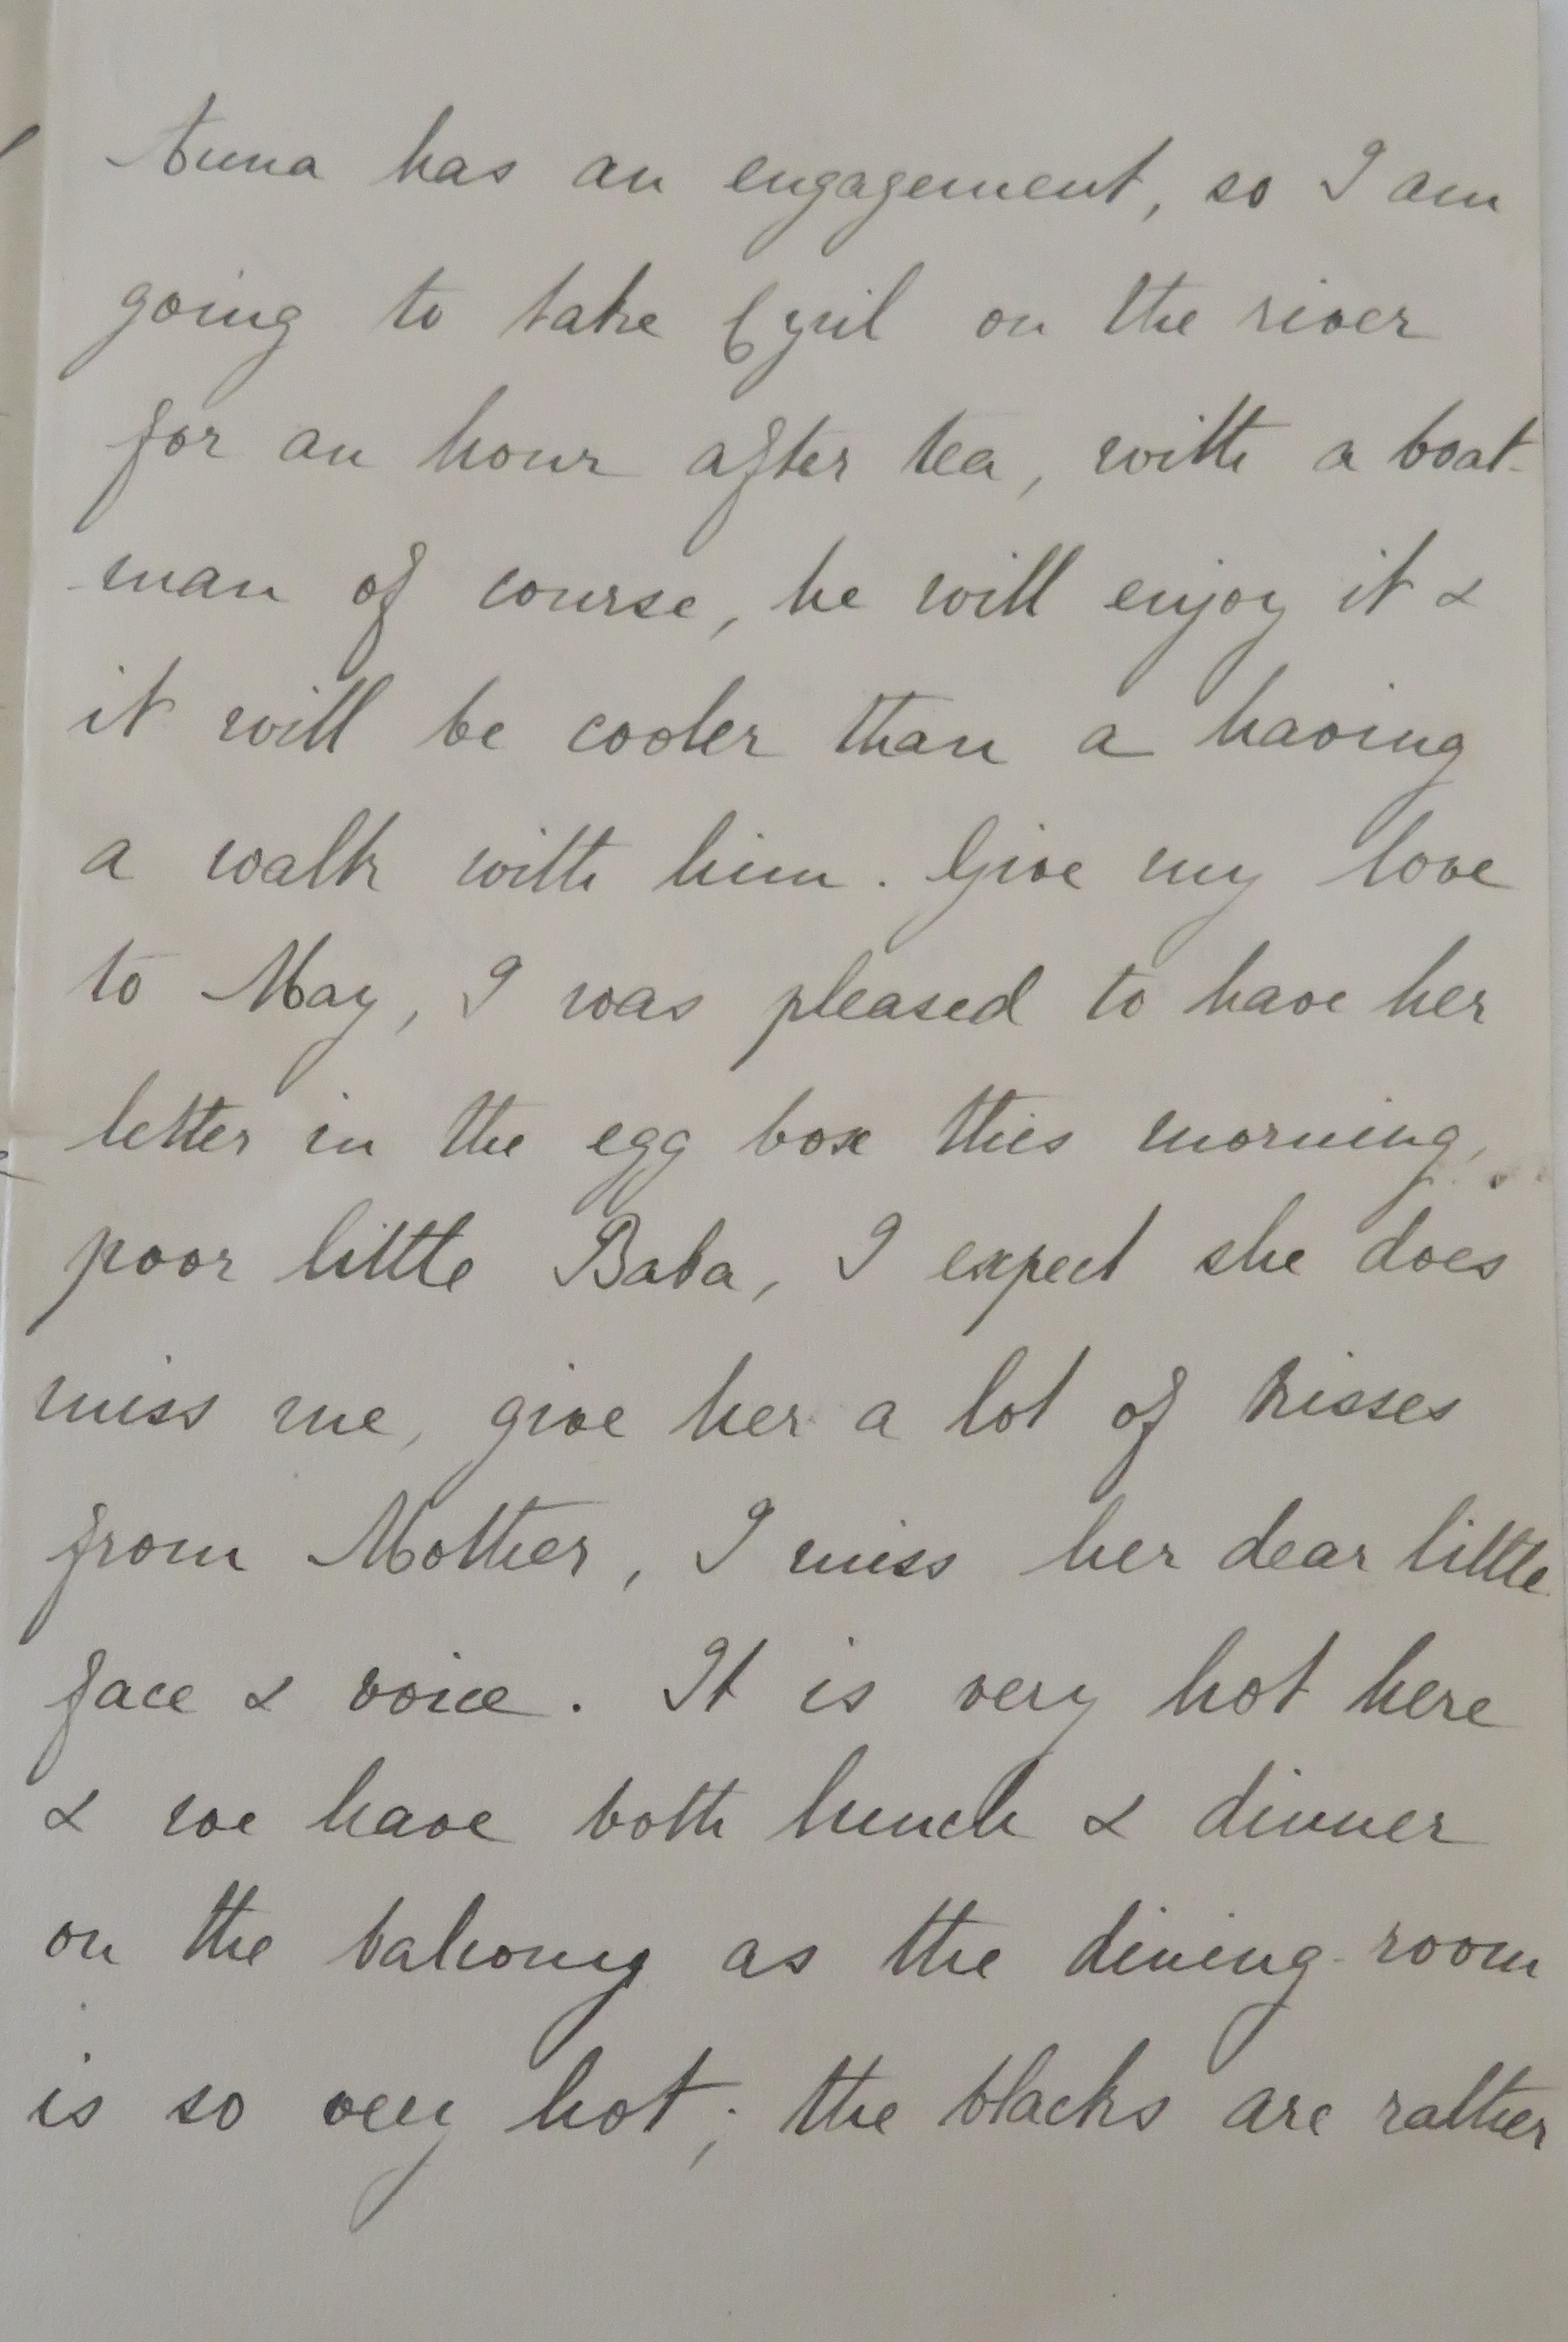 Anna has an engagement, so I am
going to take Cyril on the river
for an hour after tea, with a boat-
man of course, he will enjoy it &
it will be cooler than a having
a walk with him. Give my love
to May, I was pleased to have her
letter in the egg box this morning,
poor little Baba, I expect she does
miss me, give her a lot of kisses
from Mother, I miss her dear little
face & voice. It is very hot here
& we have both lunch & dinner
on the balcony as the dining-room
is so very hot; the blacks are rather